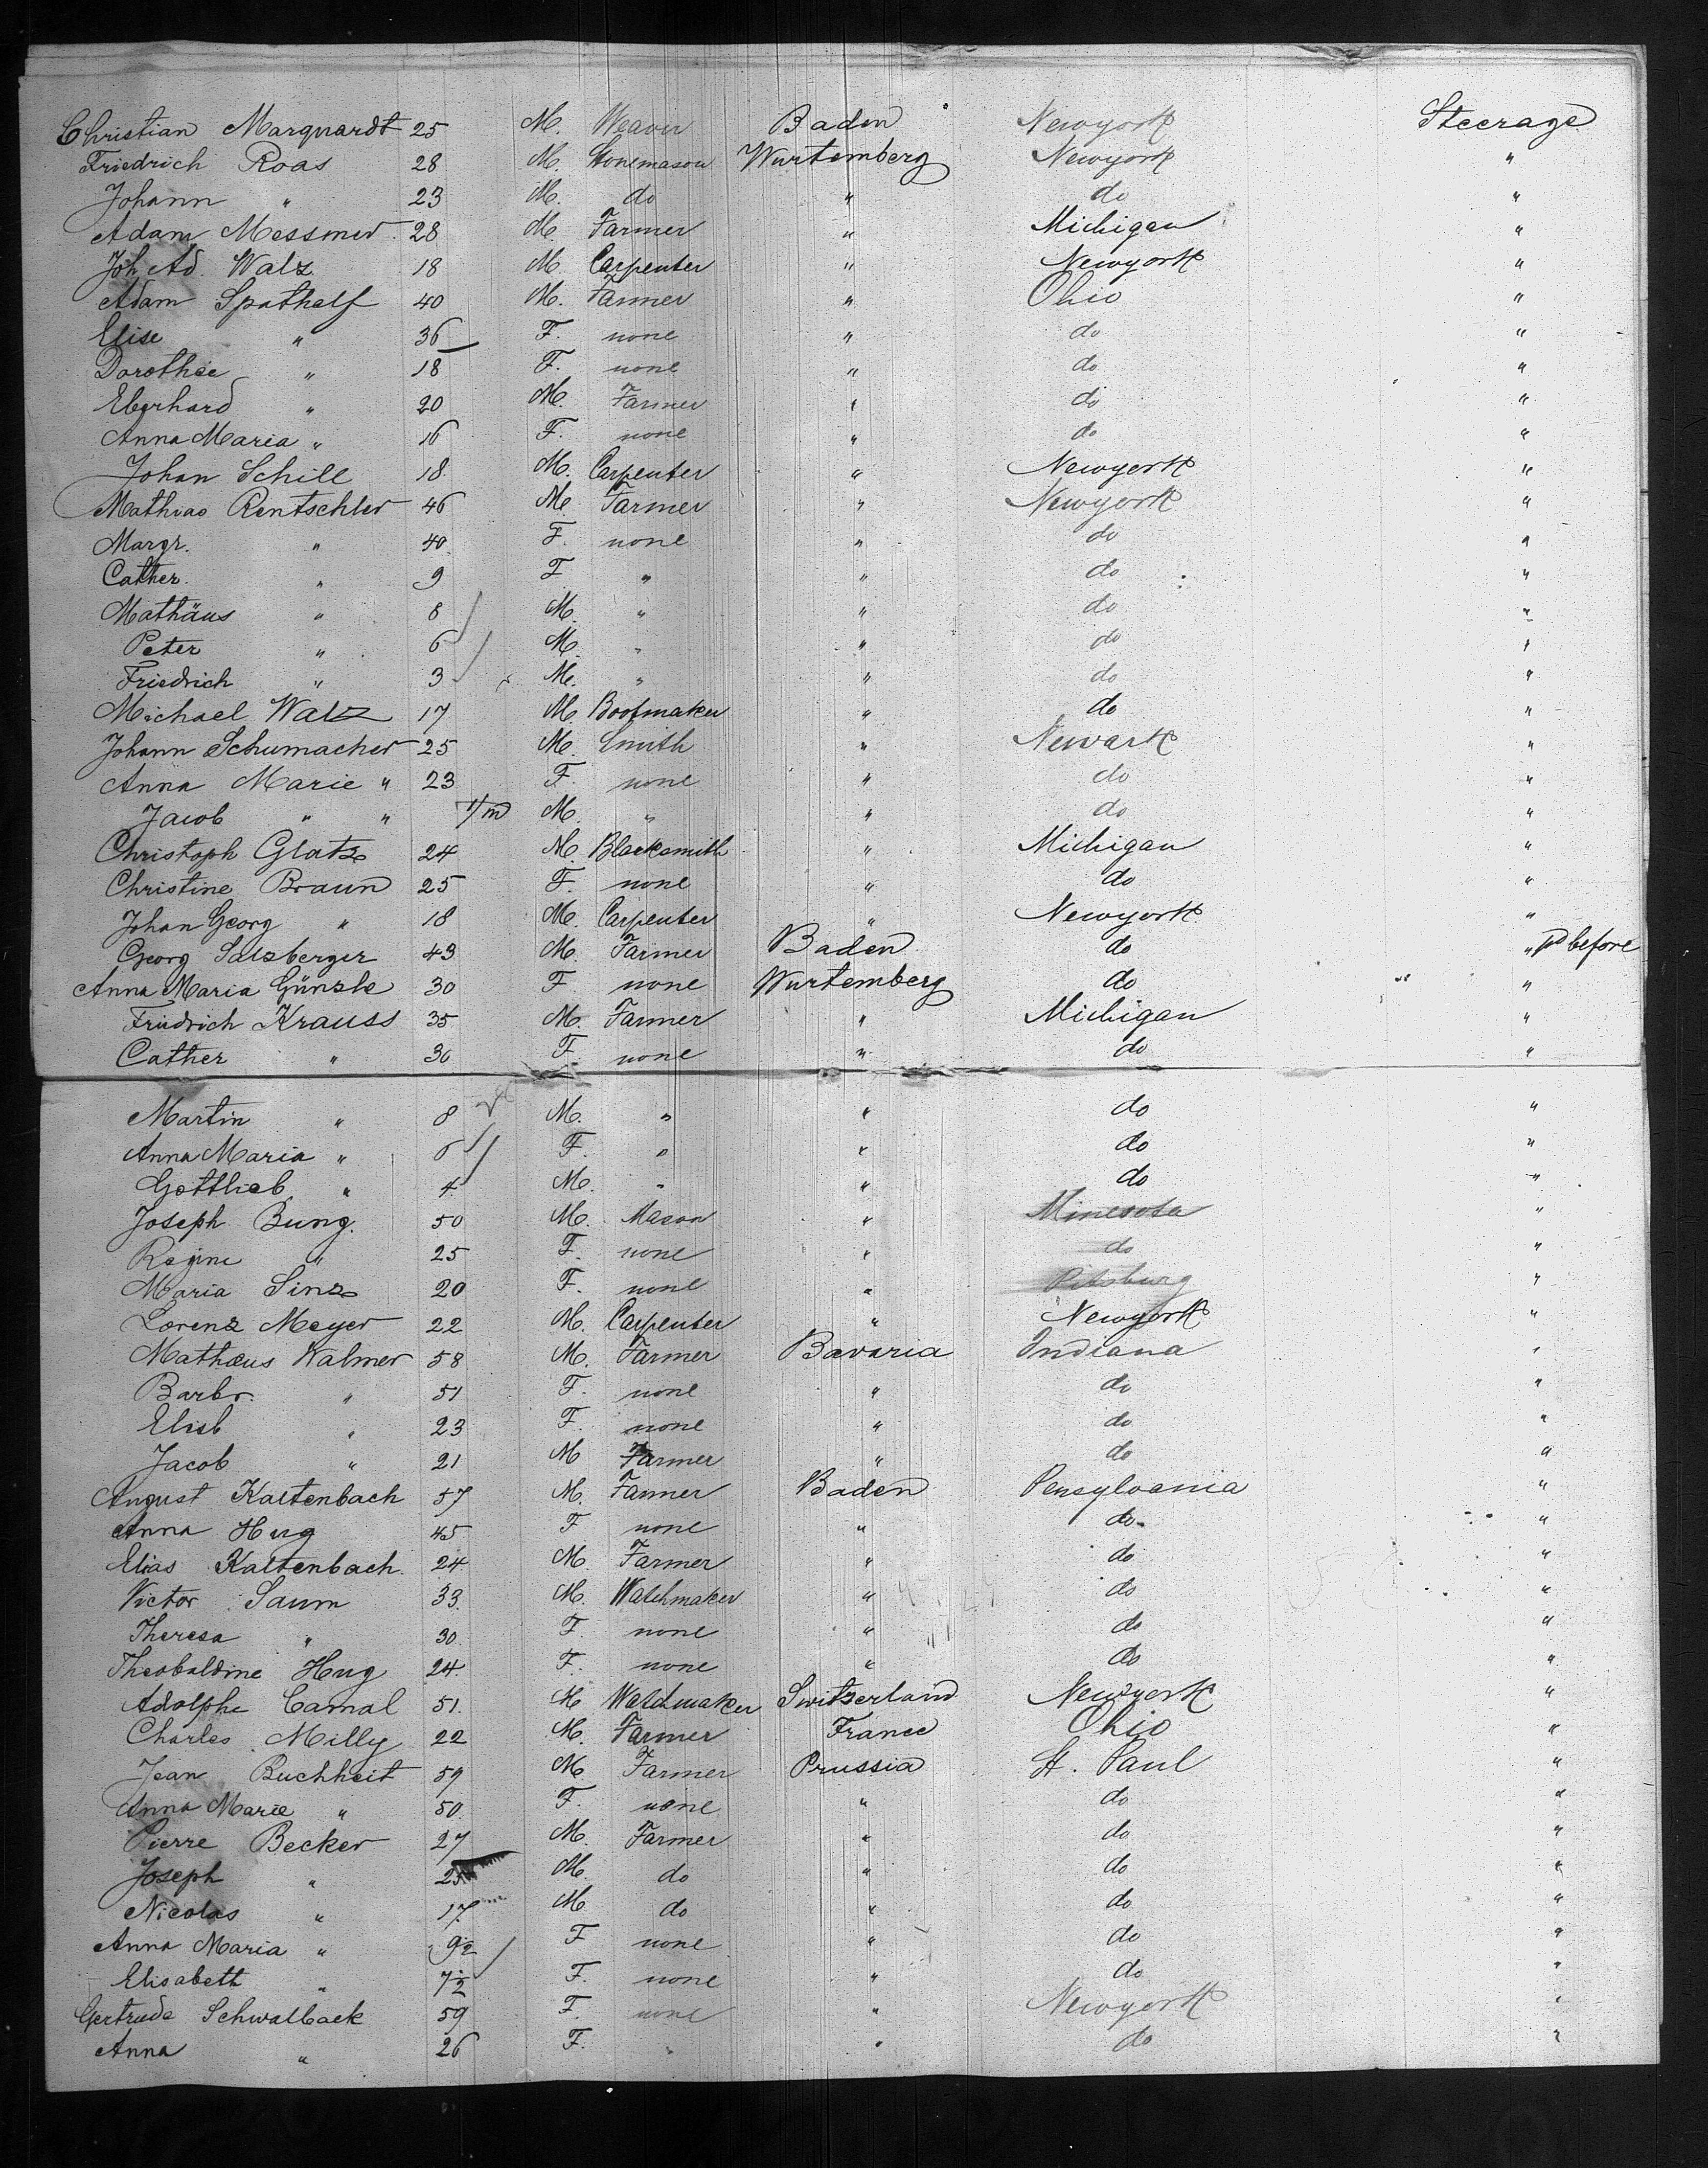 Christian Marquardt 25 M. Weaver Baden Newyork Steerage
Friedrich Roas 28 M. Stonemason Wurtemberg Newyork "
Johann " 23 M. do " do "
Adam Messmer 28 M. Farmer " Michigan "
Joh. Ad. Walz 18 M. Carpenter " Newyork "
Adam Spathelf 40 M. Farmer " Ohio "
Elise " 36 F. none " do "
Dorothée " 18 F. none " do "
Eberhard " 20 M. Farmer " do "
Anna Maria " 16 F. none " do "
Johan Schill 18 M. Carpenter " Newyork "
Mathias Rentschler 46 M. Farmer " Newyork "
Margr. " 40 F. none " do "
Cather. " 9 F " " do "
Mathäus " 8 M. " " do "
Peter " 6 M. " " do "
Friedrich " 3 M. " " do "
Michael Walz 17 M. Bootmaker " do "
Johann Schumacher 25 M. Smith " Newark "
Anna Marie " 23 F. none " do "
Jacob " " 11/m M. " " do "
Christoph Glatz 24 M. Blacksmith " Michigan "
Christine Braun 25 F. none " do "
Johan Georg " 18 M. Carpenter " Newyork "
Georg Salzberger 43 M. Farmer Baden do " pd before
Anna Maria Günzle 30 F none Wurtemberg do "
Friedrich Krauss 35 M. Farmer " Michigan "
Cather " 30 F. none " do "
Martin " 8 M. " " do "
Anna Maria " 6 F. " " do "
Gottlieb " 4 M. " " do "
Joseph Bung. 50 M. Mason " Minesota "
Regine " 25 F. none " do "
Maria Sinz 20 F. none " Pitsburg "
Lorenz Meyer 22 M. Carpenter " Newyork "
Mathaus Walmer 58 M. Farmer Bavaria Indiana "
Barbr. " 51 F. none " do "
Elisb " 23 F. none " do "
Jacob " 21 M Farmer " do "
August Kaltenbach 57 M. Farmer Baden Pensylvania "
Anna Hug 45 F none " do "
Elias Kaltenbach. 24 M. Farmer " do "
Victor Saum 33 M. Watchmaker " do "
Theresa " 30 F. none " do "
Theobaldine Hug 24 F. none " do "
Adolphe Camal 51. M Watchmaker Switzerland Newyork "
Charles Milly 22 M. Farmer France Ohio "
Jean Buchheit 59 M. Farmer Prussia St. Paul "
Anna Marie " 50 F. none " do "
Pierre Becker 27 M. Farmer " do "
Joseph " 25 M. do " do "
Nicolas " 17 M do " do "
Anna Maria " 9½ F none " do "
Elisabeth " 7½ F. none " do "
Gertrude Schwalback 59 F. none " Newyork "
Anna " 26 F. " " do "